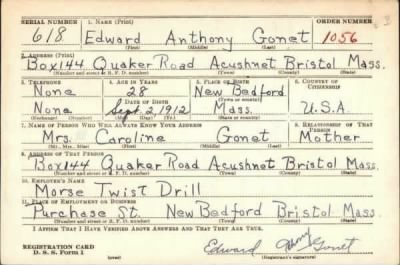 SERIAL NUMBER 1. NAME (Print) ORDER NUMBER
618 Edward Anthony Gonet 1056
(First) (Middle) (Last)
2. ADDRESS (Print)
Box144 Quaker Road Acushnet Bristol Mass.
(Number and street or R. F. D. number) (Town) (County) (State)
3. TELEPHONE 4. AGE IN YEARS 5. PLACE OF BIRTH 6. COUNTRY OF CITIZENSHIP
None 28 New Bedford
DATE OF BIRTH (Town or county)
None Sept 2 1912 Mass. U.S.A.
(Exchange) (Number) (Mo.) (Day) (Yr.) (State or country)
7. NAME OF PERSON WHO WILL ALWAYS KNOW YOUR ADDRESS 8. RELATIONSHIP OF THAT PERSON
Mrs. Caroline Gonet Mother
(Mr., Mrs., Miss) (First) (Middle) (Last)
9. ADDRESS OF THAT PERSON
Box144 Quaker Road Acushnet Bristol Mass.
(Number and street or R. F. D. number) (Town) (County) (State)
10. EMPLOYER'S NAME
Morse Twist Drill
11. PLACE OF EMPLOYMENT OR BUSINESS
Purchase St. New Bedford Bristol Mass.
(Number and street or R. F. D. number) (Town) (County) (State)
I AFFIRM THAT I HAVE VERIFIED ABOVE ANSWERS AND THAT THEY ARE TRUE.
REGISTRATION CARD
D. S. S. Form 1 (over) Edward Gonet
(Registrant's signature)